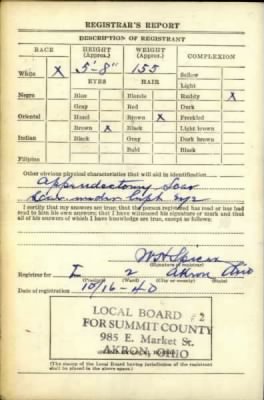 REGISTRAR'S REPORT
DESCRIPTION OF REGISTRANT
RACE HEIGHT (Approx.) WEIGHT (Approx.) COMPLEXION
White X 5'-8" 155 Sallow
EYES HAIR Light
Negro Blue Blonde Ruddy X
Gray Red Dark
Oriental Hazel Brown X Freckled
Brown X Black Light brown
Indian Black Gray Dark brown
Bald Black
Filipino
Other obvious physical characteristics that will aid in identification
Appendectomy Scar
Scar under right eye
I certify that my answers are true; that the person registered has read or has had
read to him his own answers; that I have witnessed his signature or mark and that
all of his answers of which I have knowledge are true, except as follows:
(Signature of registrar)
Registrar for I 2 Akron Ohio
(Precinct) (Ward) (City or county) (State)
Date of registration 10/16-40
LOCAL BOARD #2
FOR SUMMIT COUNTY
985 E. Market St.
AKRON, OHIO
(The stamp of the Local Board having jurisdiction of the registrant
shall be placed in the above space.)